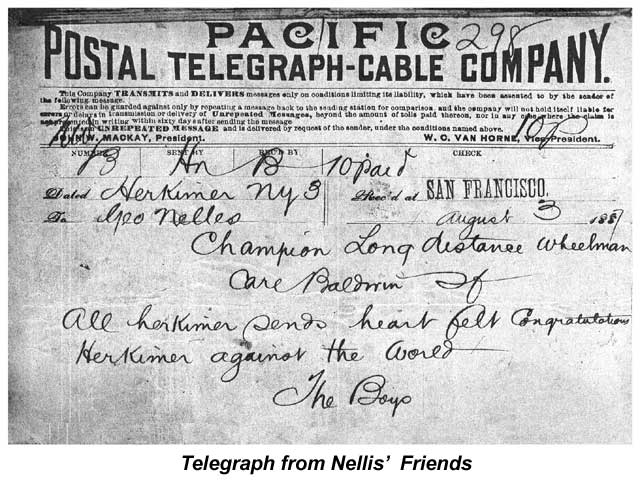 PACIFIC 298
POSTAL TELEGRAPH-CABLE COMPANY.
This Company TRANSMITS and DELIVERS messages only on conditions limiting its liability, which have been assented to by the sender of
the following message.
Errors can be guarded against only by repeating a message back to the sending station for comparison, and the company will not hold itself liable for
errors or delays in transmission or delivery of Unrepeated Messages, beyond the amount of tolls paid thereon, nor in any case where the claim is
not presented in writing within sixty days after sending the message
This is an UNREPEATED MESSAGE and is delivered by request of the sender, under the conditions named above.
JOHN W. MACKAY, President. W. C. VAN HORNE, Vice President.
NUMBER SENT REC'D BY CHECK
Hn B 10 paid
Dated Herkimer Ny 3 Rec'd at SAN FRANCISCO.
To Geo Nelles August 3 1887
Champion Long distance Wheelman
Care Baldwin Sf
All herkimer sends heart felt Congratulations
Herkimer against the World
The Boys
Telegraph from Nellis' Friends